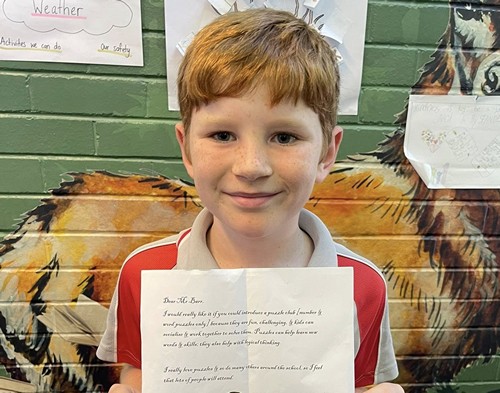 Weather
Activities we can do
Our safety
Dear Mr Barr,
I would really like it if you could introduce a puzzle club (number &
word puzzles only) because they are fun, challenging, & kids can
socialise & work together to solve them. Puzzles can help learn new
words & skills; they also help with logical thinking.
I really love puzzles & so do many others around the school, so I feel
that lots of people will attend.